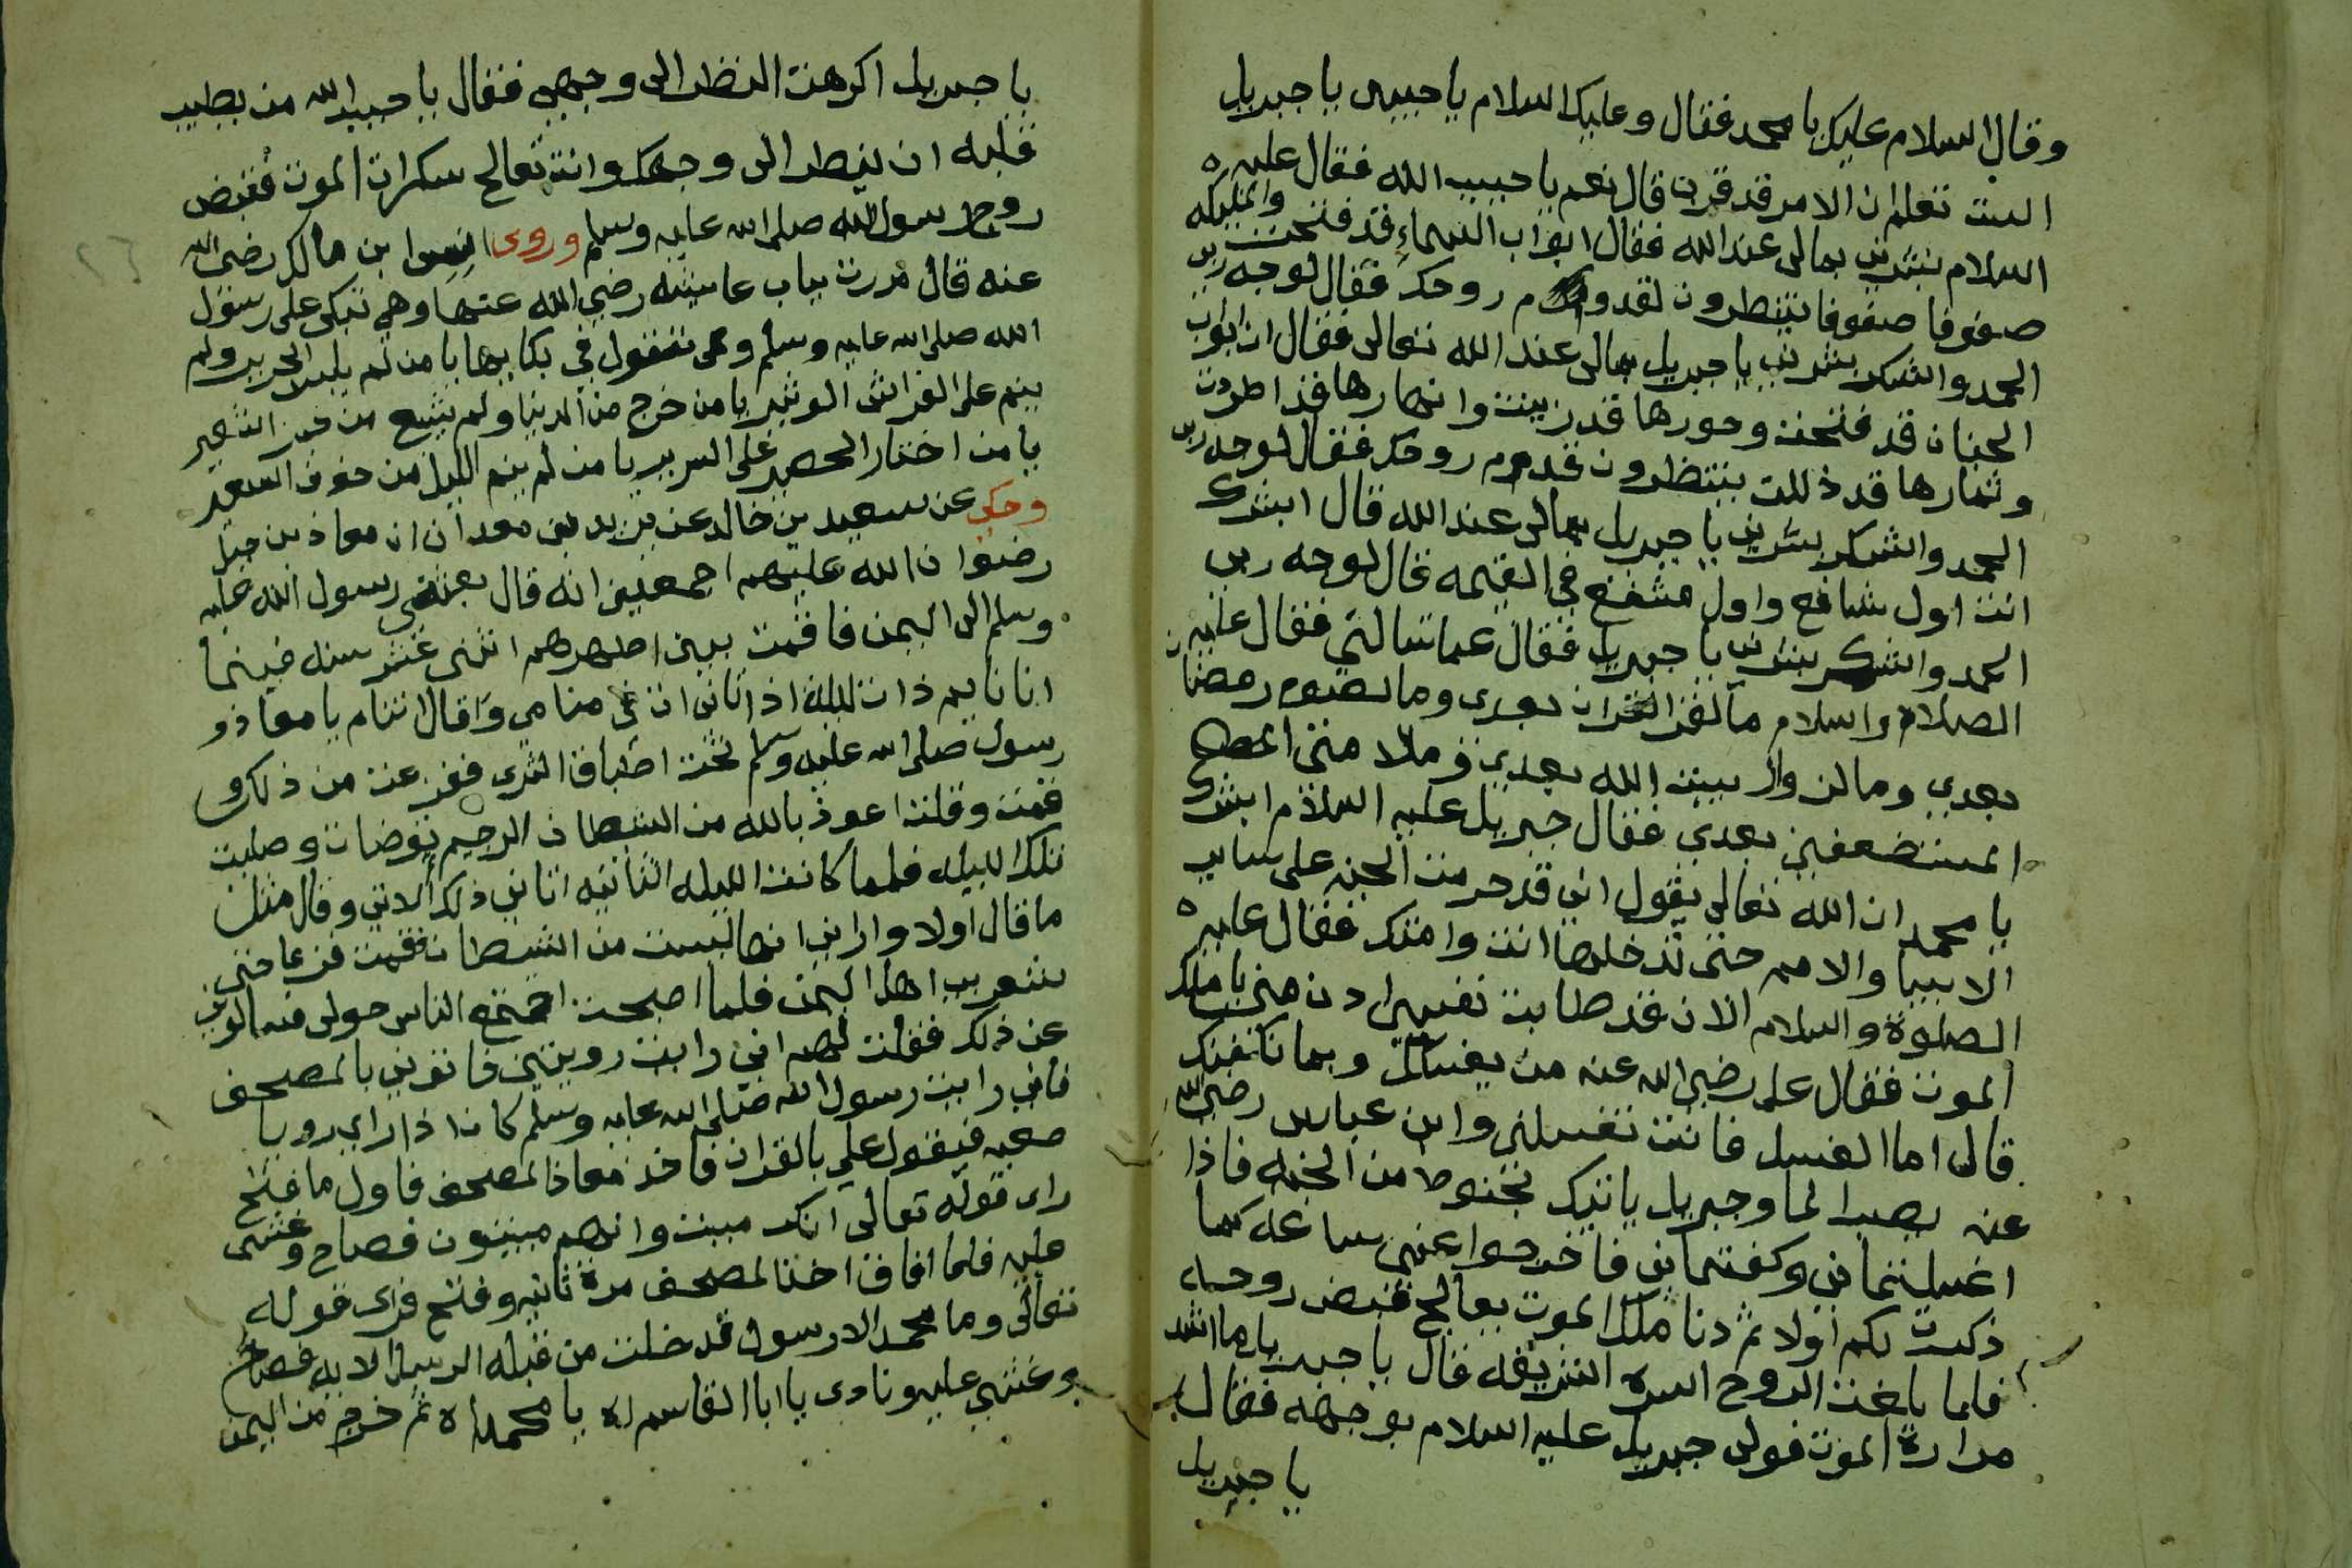 وقال السلام عليك يا محمد فقال وعليك السلام يا حبيبى يا جبريل
الست تعلم ان الامر قد قرب قال نعم يا حبيب الله فقال عليه
السلام بشرنى بمالى عند الله فقال ابواب السماء قد فتحت والمليكه
صفوفا صفوفا ينتظرون لقدوم روحك فقال لوجه ربى
الحمد والشكر بشرنى يا جبريل بمالى عند الله تعالى فقال ان ابواب
الجنان قد فتحت وحورها قد زينت وانهارها قد اطردت
وثمارها قد ذللت ينتظرون قدوم روحك فقال لوجه ربى
الحمد والشكر بشرنى يا جبريل بمالى عند الله قال ابشرك
انت اول شافع واول مشفع في القيمه قال لوجه ربى
الحمد والشكر بشرنى يا جبريل فقال عما تسالني فقال عليه
الصلاة والسلام ما لقرا القران بعدى وما لصوم رمضان
بعدي ومالزوار بيت الله بعدي ومالا متى
المستضعفين بعدي فقال جبريل عليه السلام ابشرك
يا محمد ان الله تعالى يقول اني قد حرمت الجنه على ساير
الانبيا والامم حتى تدخلها انت وامتك فقال عليه
الصلوة والسلام الان قد طابت نفسى ادن منى يا ملك
الموت فقال على رضي الله عنه من يغسلك وبما نكفنك
قال اما الغسل فانت تغسلنى وابن عباس رضي الله
عنه يصب الما وجبريل ياتيك بحنوط من الجنه فاذا
اغسلتمانى وكفنتمانى فاخرجوا عنى ساعه كما
ذكرت لكم اولا ثم دنا ملك الموت يعالج قبض روحه
فلما بلغت الروح السره الشريفه قال يا جبريل ما اشد
مرارة الموت فولى جبريل عليه السلام بوجهه فقال
يا جبريل
يا جبريل اكرهت النظر الى وجهي فقال يا حبيب الله من يطيب
قلبه ان ينظر الى وجهك وانت تعالج سكرات الموت فقبض
روح رسول الله صلى الله عليه وسلم وروى انس ابن مالك رضي الله
عنه قال مررت بباب عايشه رضي الله عنها وهي تبكى على رسول
الله صلى الله عليه وسلم وهى تقول في بكايها يا من لم يلبس الحرير ولم
ينم على الفراش الوثير يا من خرج من الدنيا ولم يشبع من خبز الشعير
يا من اختار الحصير على السرير يا من لم ينم الليل من خوف السعير
وحكي عن سعيد بن خالد عن يزيد بن معدان ان معاذ بن جبل
رضوان الله عليهم اجمعين انه قال بعثني رسول الله صلى عليه
وسلم الى اليمن فاقمت بين اظهرهم اثنى عشر سنه فبينما
انا نايم ذات ليلة اذ اتانى ات في منامى وقال اتنام يا معاذ و
رسول صلى الله عليه وسلم تحت اطباق الثرى ففزعت من ذلك و
قمت وقلت اعوذ بالله من الشيطان الرجيم توضات وصليت
تلك الليله فلما كانت الليله الثانيه اتاني ذلك الاتي وقال مثل
ما قال اولا وارانى انها ليست من الشيطان فقمت فزعا حتى
اهل اليمن فلما اصبحت اجتمع الناس حولى فسالونى
عن ذلك فقلت لهم اني رايت رويتين فاتوني بالمصحف
فاني رايت رسول الله صلى الله عليه وسلم كان اذا راى رويا
صعبه فيقول علي بالقران فاخذ معاذ المصحف فاول ما فتح
راى قوله تعالى انك ميت وانهم ميتون فصاح وغشى
عليه فلما افاق اخذ المصحف مرة ثانيه وفتح فراى قوله
تعالى وما محمد الا رسول قد خلت من قبله الرسل الايه فصاح
وغشي عليه ونادى يا ابا القاسماه يا محمداه ثم خرج من اليمن